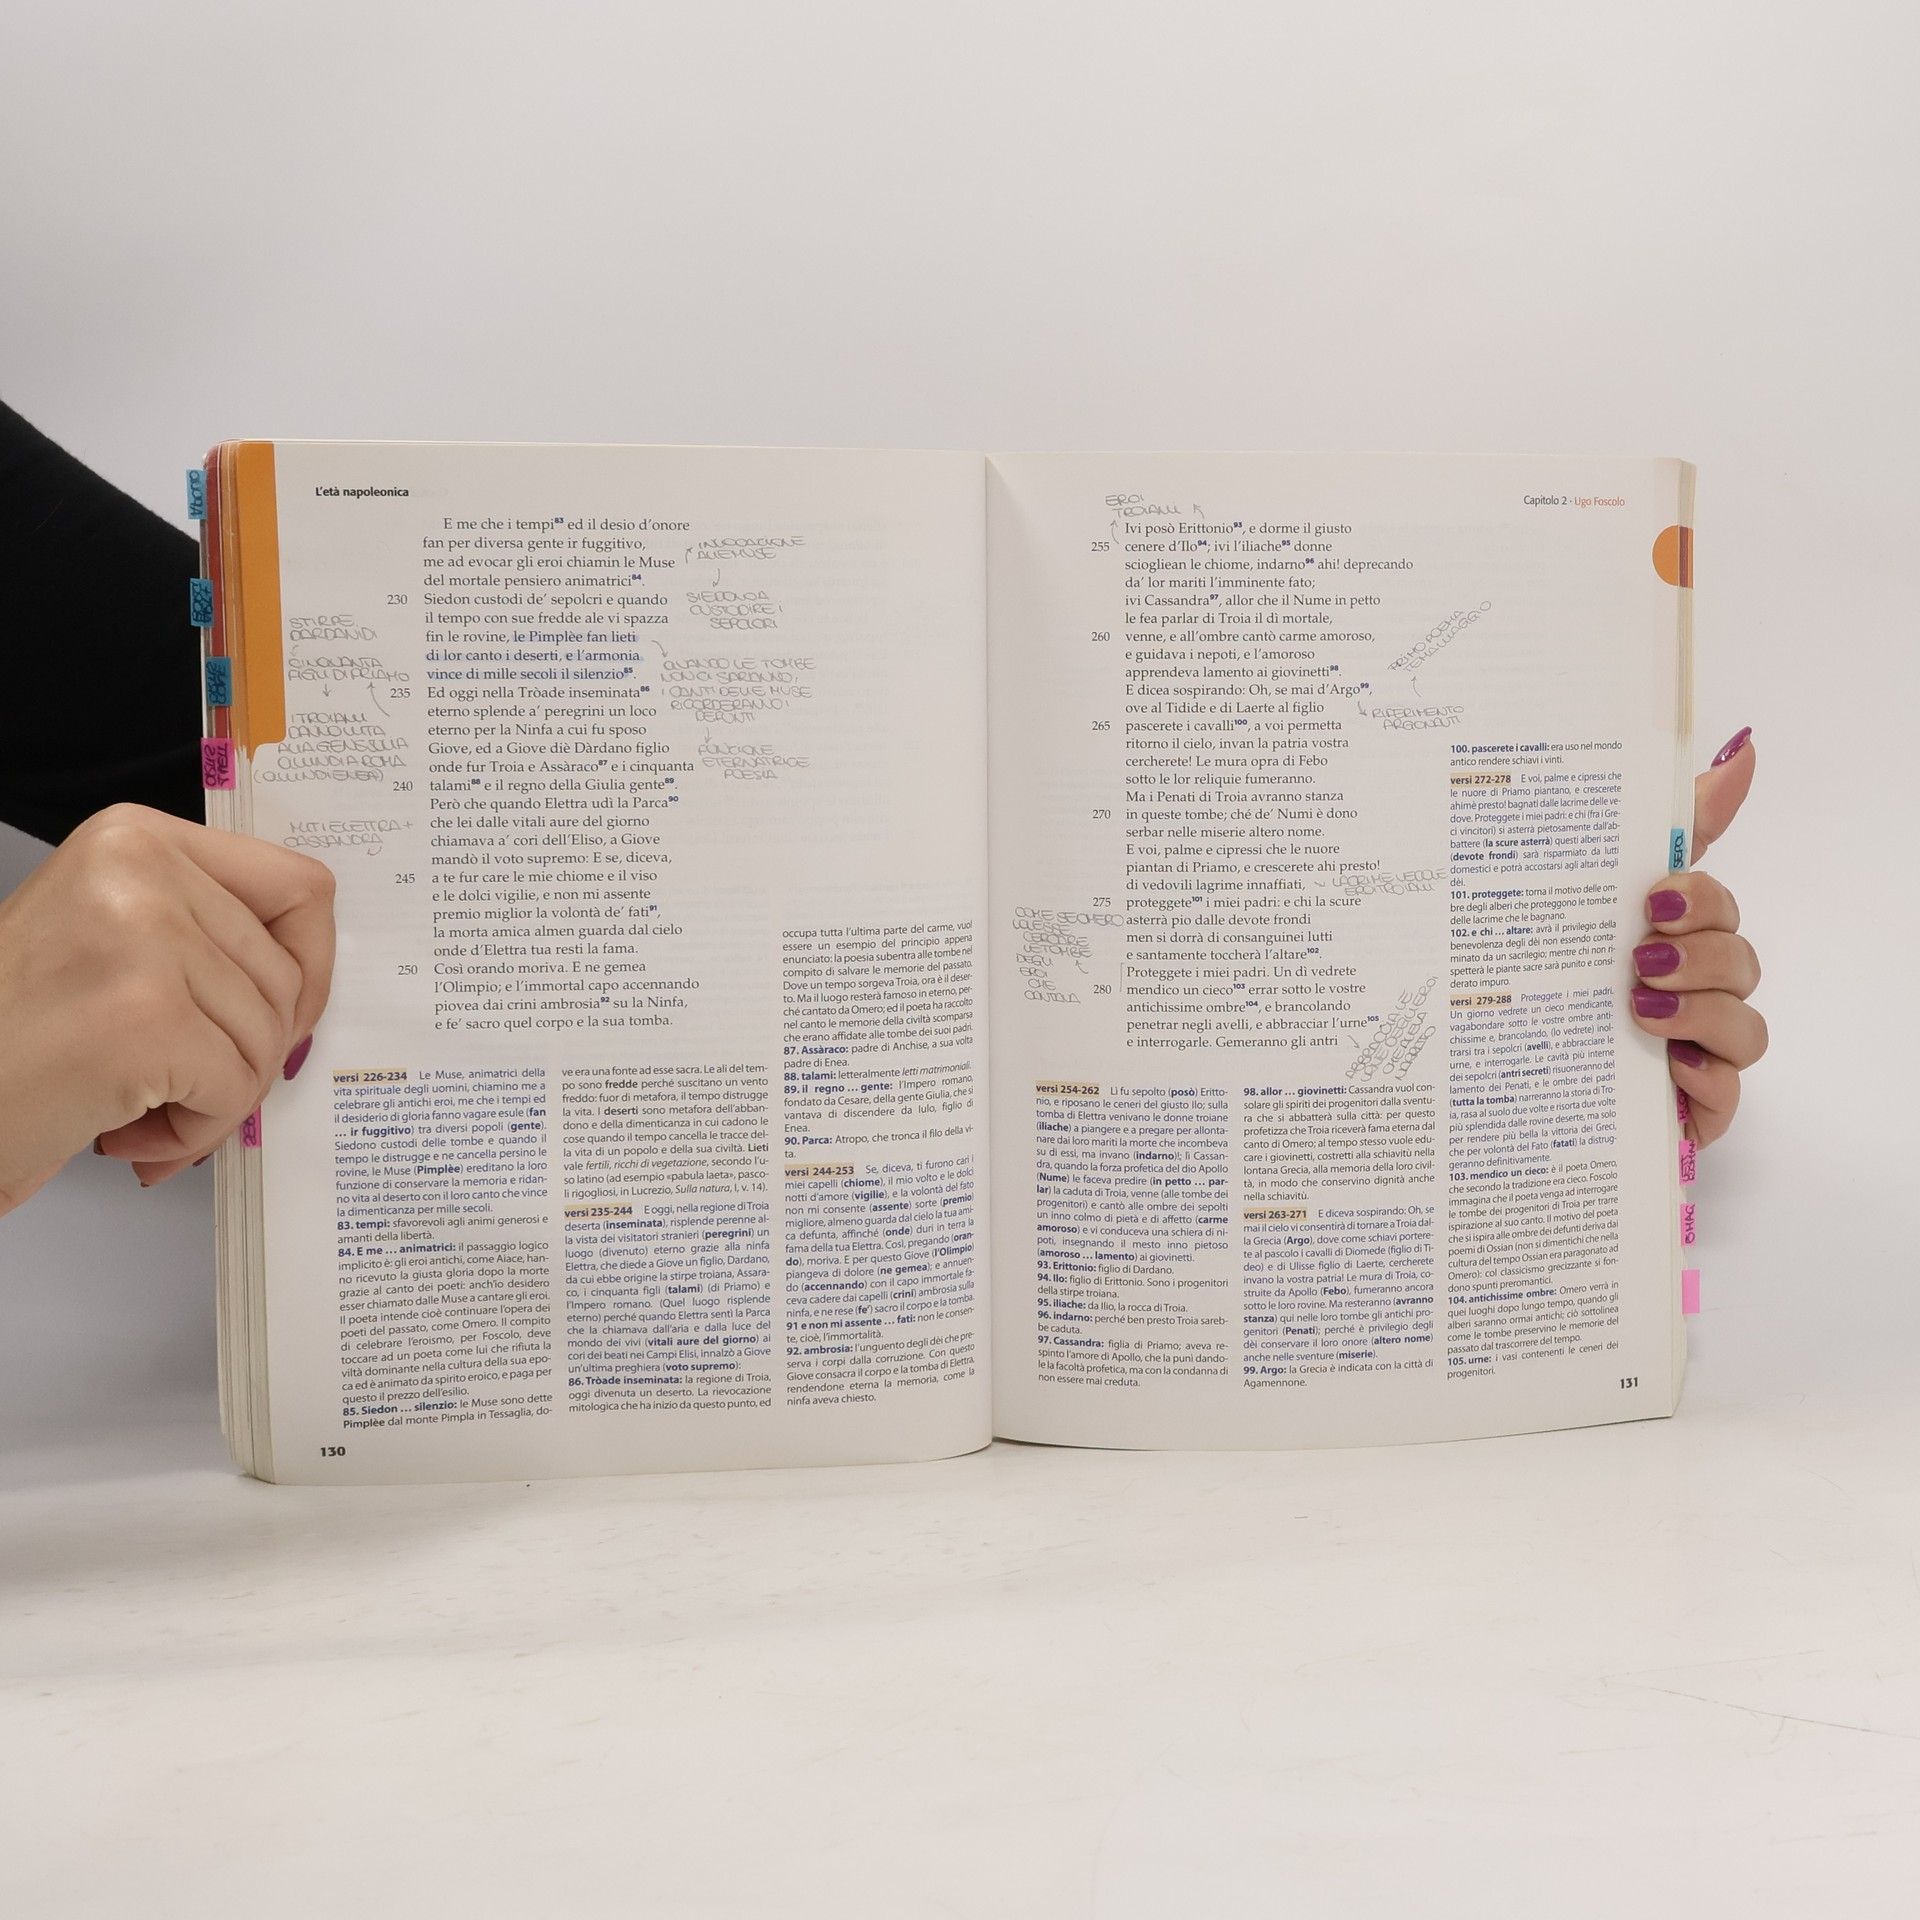 L'età napoleonica
E me che i tempi⁸³ ed il desio d'onore
fan per diversa gente ir fuggitivo,
me ad evocar gli eroi chiamin le Muse
del mortale pensiero animatrici⁸⁴.
230 Siedon custodi de' sepolcri e quando
il tempo con sue fredde ale vi spazza
fin le rovine, le Pimplèe fan lieti
di lor canto i deserti, e l'armonia
vince di mille secoli il silenzio⁸⁵.
235 Ed oggi nella Tròade inseminata⁸⁶
eterno splende a' peregrini un loco
eterno per la Ninfa a cui fu sposo
Giove, ed a Giove diè Dàrdano figlio
onde fur Troia e Assàraco⁸⁷ e i cinquanta
240 talami⁸⁸ e il regno della Giulia gente⁸⁹.
Però che quando Elettra udì la Parca⁹⁰
che lei dalle vitali aure del giorno
chiamava a' cori dell'Eliso, a Giove
mandò il voto supremo: E se, diceva,
245 a te fur care le mie chiome e il viso
e le dolci vigilie, e non mi assente
premio miglior la volontà de' fati⁹¹,
la morta amica almen guarda dal cielo
onde d'Elettra tua resti la fama.
250 Così orando moriva. E ne gemea
l'Olimpio; e l'immortal capo accennando
piovea dai crini ambrosia⁹² su la Ninfa,
e fe' sacro quel corpo e la sua tomba.
INVOCAZIONE
ALLE MUSE
SIEDONO A
CUSTODIRE I
SEPOLCRI
QUANDO LE TOMBE
NON CI SARANNO,
I CANTI DELLE MUSE
RICORDERANNO I
DEFUNTI
FUNZIONE
ETERNATRICE
POESIA
STIRPE
DARDANIDI
CINQUANTA
FIGLI DI PRIAMO
I TROIANI
DANNO VITA
ALLA GENS IULIA
QUINDI A ROMA
(QUINDI ENEA)
MITI ELETTRA +
CASSANDRA
versi 226-234 Le Muse, animatrici della
vita spirituale degli uomini, chiamino me a
celebrare gli antichi eroi, me che i tempi ed
il desiderio di gloria fanno vagare esule (fan
... ir fuggitivo) tra diversi popoli (gente).
Siedono custodi delle tombe e quando il
tempo le distrugge e ne cancella persino le
rovine, le Muse (Pimplèe) ereditano la loro
funzione di conservare la memoria e ridan-
no vita al deserto con il loro canto che vince
la dimenticanza per mille secoli.
83. tempi: sfavorevoli agli animi generosi e
amanti della libertà.
84. E me ... animatrici: il passaggio logico
implicito è: gli eroi antichi, come Aiace, han-
no ricevuto la giusta gloria dopo la morte
grazie al canto dei poeti: anch'io desidero
esser chiamato dalle Muse a cantare gli eroi.
Il poeta intende cioè continuare l'opera dei
poeti del passato, come Omero. Il compito
di celebrare l'eroismo, per Foscolo, deve
toccare ad un poeta come lui che rifiuta la
viltà dominante nella cultura della sua epo-
ca ed è animato da spirito eroico, e paga per
questo il prezzo dell'esilio.
85. Siedon ... silenzio: le Muse sono dette
Pimplèe dal monte Pimpla in Tessaglia, do-
ve era una fonte ad esse sacra. Le ali del tem-
po sono fredde perché suscitano un vento
freddo: fuor di metafora, il tempo distrugge
la vita. I deserti sono metafora dell'abban-
dono e della dimenticanza in cui cadono le
cose quando il tempo cancella le tracce del-
la vita di un popolo e della sua civiltà. Lieti
vale fertili, ricchi di vegetazione, secondo l'u-
so latino (ad esempio «pabula laeta», pasco-
li rigogliosi, in Lucrezio, Sulla natura, I, v. 14).
versi 235-244 E oggi, nella regione di Troia
deserta (inseminata), risplende perenne al-
la vista dei visitatori stranieri (peregrini) un
luogo (divenuto) eterno grazie alla ninfa
Elettra, che diede a Giove un figlio, Dardano,
da cui ebbe origine la stirpe troiana, Assara-
co, i cinquanta figli (talami) (di Priamo) e
l'Impero romano. (Quel luogo risplende
eterno) perché quando Elettra sentì la Parca
che la chiamava dall'aria e dalla luce del
mondo dei vivi (vitali aure del giorno) ai
cori dei beati nei Campi Elisi, innalzò a Giove
un'ultima preghiera (voto supremo):
86. Tròade inseminata: la regione di Troia,
oggi divenuta un deserto. La rievocazione
mitologica che ha inizio da questo punto, ed
occupa tutta l'ultima parte del carme, vuol
essere un esempio del principio appena
enunciato: la poesia subentra alle tombe nel
compito di salvare le memorie del passato.
Dove un tempo sorgeva Troia, ora è il deser-
to. Ma il luogo resterà famoso in eterno, per-
ché cantato da Omero; ed il poeta ha raccolto
nel canto le memorie della civiltà scomparsa
che erano affidate alle tombe dei suoi padri.
87. Assàraco: padre di Anchise, a sua volta
padre di Enea.
88. talami: letteralmente letti matrimoniali.
89. il regno ... gente: l'Impero romano,
fondato da Cesare, della gente Giulia, che si
vantava di discendere da Iulo, figlio di
Enea.
90. Parca: Atropo, che tronca il filo della vi-
ta.
versi 244-253 Se, diceva, ti furono cari i
miei capelli (chiome), il mio volto e le dolci
notti d'amore (vigilie), e la volontà del fato
non mi consente (assente) sorte (premio)
migliore, almeno guarda dal cielo la tua ami-
ca defunta, affinché (onde) duri in terra la
fama della tua Elettra. Così, pregando (oran-
do), moriva. E per questo Giove (l'Olimpio)
piangeva di dolore (ne gemea); e annuen-
do (accennando) con il capo immortale fa-
ceva cadere dai capelli (crini) ambrosia sulla
ninfa, e ne rese (fe') sacro il corpo e la tomba.
91 e non mi assente ... fati: non le consen-
te, cioè, l'immortalità.
92. ambrosia: l'unguento degli dèi che pre-
serva i corpi dalla corruzione. Con questo
Giove consacra il corpo e la tomba di Elettra,
rendendone eterna la memoria, come la
ninfa aveva chiesto.
130
Capitolo 2 · Ugo Foscolo
EROI
TROIANI
Ivi posò Erittonio⁹³, e dorme il giusto
255 cenere d'Ilo⁹⁴; ivi l'iliache⁹⁵ donne
sciogliean le chiome, indarno⁹⁶ ahi! deprecando
da' lor mariti l'imminente fato;
ivi Cassandra⁹⁷, allor che il Nume in petto
le fea parlar di Troia il dì mortale,
260 venne, e all'ombre cantò carme amoroso,
e guidava i nepoti, e l'amoroso
apprendeva lamento ai giovinetti⁹⁸.
E dicea sospirando: Oh, se mai d'Argo⁹⁹,
ove al Tidide e di Laerte al figlio
265 pascerete i cavalli¹⁰⁰, a voi permetta
ritorno il cielo, invan la patria vostra
cercherete! Le mura opra di Febo
sotto le lor reliquie fumeranno.
Ma i Penati di Troia avranno stanza
270 in queste tombe; ché de' Numi è dono
serbar nelle miserie altero nome.
E voi, palme e cipressi che le nuore
piantan di Priamo, e crescerete ahi presto!
di vedovili lagrime innaffiati,
275 proteggete¹⁰¹ i miei padri: e chi la scure
asterrà pio dalle devote frondi
men si dorrà di consanguinei lutti
e santamente toccherà l'altare¹⁰².
Proteggete i miei padri. Un dì vedrete
280 mendico un cieco¹⁰³ errar sotto le vostre
antichissime ombre¹⁰⁴, e brancolando
penetrar negli avelli, e abbracciar l'urne¹⁰⁵
e interrogarle. Gemeranno gli antri
PRIMO POEMA
TEMA VIAGGIO
RIFERIMENTO
ARGONAUTI
LACRIME VEDOVE
EROI TROIANI
COME SE OMERO
VOLESSE
LE TOMBE
DEGLI
EROI
CHE
CANTAVA
versi 254-262 Lì fu sepolto (posò) Eritto-
nio, e riposano le ceneri del giusto Ilo; sulla
tomba di Elettra venivano le donne troiane
(iliache) a piangere e a pregare per allonta-
nare dai loro mariti la morte che incombeva
su di essi, ma invano (indarno)!; lì Cassan-
dra, quando la forza profetica del dio Apollo
(Nume) le faceva predire (in petto ... par-
lar) la caduta di Troia, venne (alle tombe dei
progenitori) e cantò alle ombre dei sepolti
un inno colmo di pietà e di affetto (carme
amoroso) e vi conduceva una schiera di ni-
poti, insegnando il mesto inno pietoso
(amoroso ... lamento) ai giovinetti.
93. Erittonio: figlio di Dardano.
94. Ilo: figlio di Erittonio. Sono i progenitori
della stirpe troiana.
95. iliache: da Ilio, la rocca di Troia.
96. indarno: perché ben presto Troia sareb-
be caduta.
97. Cassandra: figlia di Priamo; aveva re-
spinto l'amore di Apollo, che la punì dando-
le la facoltà profetica, ma con la condanna di
non essere mai creduta.
98. allor ... giovinetti: Cassandra vuol con-
solare gli spiriti dei progenitori dalla sventu-
ra che si abbatterà sulla città: per questo
profetizza che Troia riceverà fama eterna dal
canto di Omero; al tempo stesso vuole edu-
care i giovinetti, costretti alla schiavitù nella
lontana Grecia, alla memoria della loro civil-
tà, in modo che conservino dignità anche
nella schiavitù.
versi 263-271 E diceva sospirando: Oh, se
mai il cielo vi consentirà di tornare a Troia dal-
la Grecia (Argo), dove come schiavi porter-
te al pascolo i cavalli di Diomede (figlio di Ti-
deo) e di Ulisse figlio di Laerte, cercherete
invano la vostra patria! Le mura di Troia, co-
struite da Apollo (Febo), fumeranno ancora
sotto le loro rovine. Ma resteranno (avranno
stanza) qui nelle loro tombe gli antichi pro-
genitori (Penati); perché è privilegio degli
dèi conservare il loro onore (altero nome)
anche nelle sventure (miserie).
99. Argo: la Grecia è indicata con la città di
Agamennone.
100. pascerete i cavalli: era uso nel mondo
antico rendere schiavi i vinti.
versi 272-278 E voi, palme e cipressi che
le nuore di Priamo piantano, e crescerete
ahimè presto! bagnati dalle lacrime delle ve-
dove. Proteggete i miei padri: e chi (fra i Gre-
ci vincitori) si asterrà pietosamente dall'ab-
battere (la scure asterrà) questi alberi sacri
(devote frondi) sarà risparmiato da lutti
domestici e potrà accostarsi agli altari degli
dèi.
101. proteggete: torna il motivo delle om-
bre degli alberi che proteggono le tombe e
delle lacrime che le bagnano.
102. e chi ... altare: avrà il privilegio della
benevolenza degli dèi non essendo conta-
minato da un sacrilegio; mentre chi non ri-
spetterà le piante sacre sarà punito e consi-
derato impuro.
versi 279-288 Proteggete i miei padri.
Un giorno vedrete un cieco mendicante,
vagabondare sotto le vostre ombre anti-
chissime e, brancolando, (lo vedrete) inol-
trarsi tra i sepolcri (avelli), e abbracciare le
urne, e interrogarle. Le cavità più interne
dei sepolcri (antri secreti) risuoneranno del
lamento dei Penati, e le ombre dei padri
(tutta la tomba) narreranno la storia di Tro-
ia, rasa al suolo due volte e risorta due volte
più splendida dalle rovine deserte, ma solo
per rendere più bella la vittoria dei Greci,
che per volontà del Fato (fatati) la distrug-
geranno definitivamente.
103. mendico un cieco: è il poeta Omero,
che secondo la tradizione era cieco. Foscolo
immagina che il poeta venga ad interrogare
le tombe dei progenitori di Troia per trarre
ispirazione al suo canto. Il motivo del poeta
che si ispira alle ombre dei defunti deriva dai
poemi di Ossian (non si dimentichi che nella
cultura del tempo Ossian era paragonato ad
Omero): col classicismo grecizzante si fon-
dono spunti preromantici.
104. antichissime ombre: Omero verrà in
quei luoghi dopo lungo tempo, quando gli
alberi saranno ormai antichi; ciò sottolinea
come le tombe preservino le memorie del
passato dal trascorrere del tempo.
105. urne: i vasi contenenti le ceneri dei
progenitori.
131